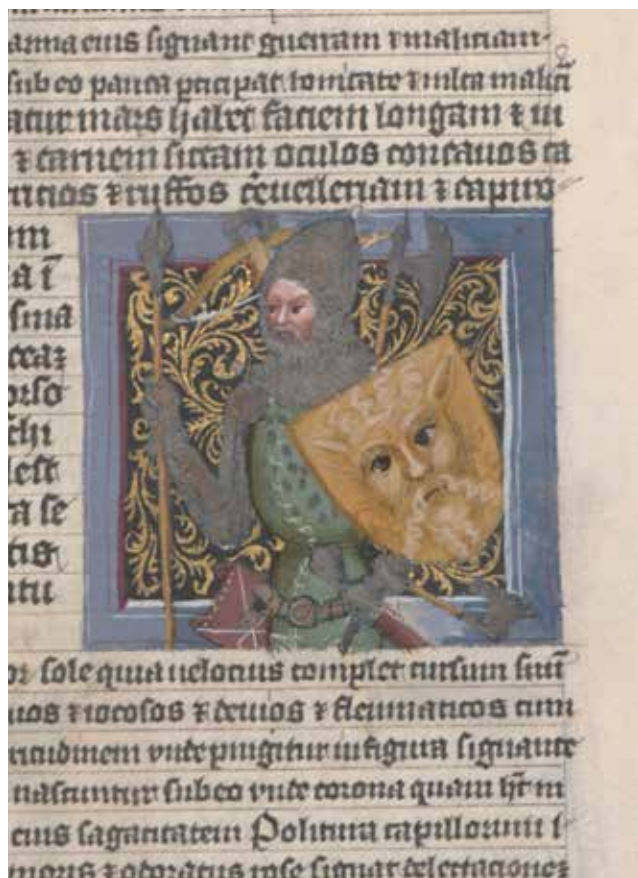 arma eius signant guerram ⁊ maliciam
sub eo pauca pticipat bonitate ⁊ multa malici
atur mars habet faciem longam ⁊ in
⁊ carnem siccam oculos concauos ca
⁊ ruffos ceruelleriam ⁊ capiro
m
a ī
sma
ccaꝝ
orso
chi
lest
a se
tis
ntu
or sole quia uelocius complet cursum suū
uos ⁊ iocosos ⁊ ⁊ fleumaticos cum
ritudinem unde pingitur in figura signante
nascuntur sub eo unde corona quam hr̄ in
eius sagacitatem Politura capillorum
⁊ odoratus rose signat delectacionez